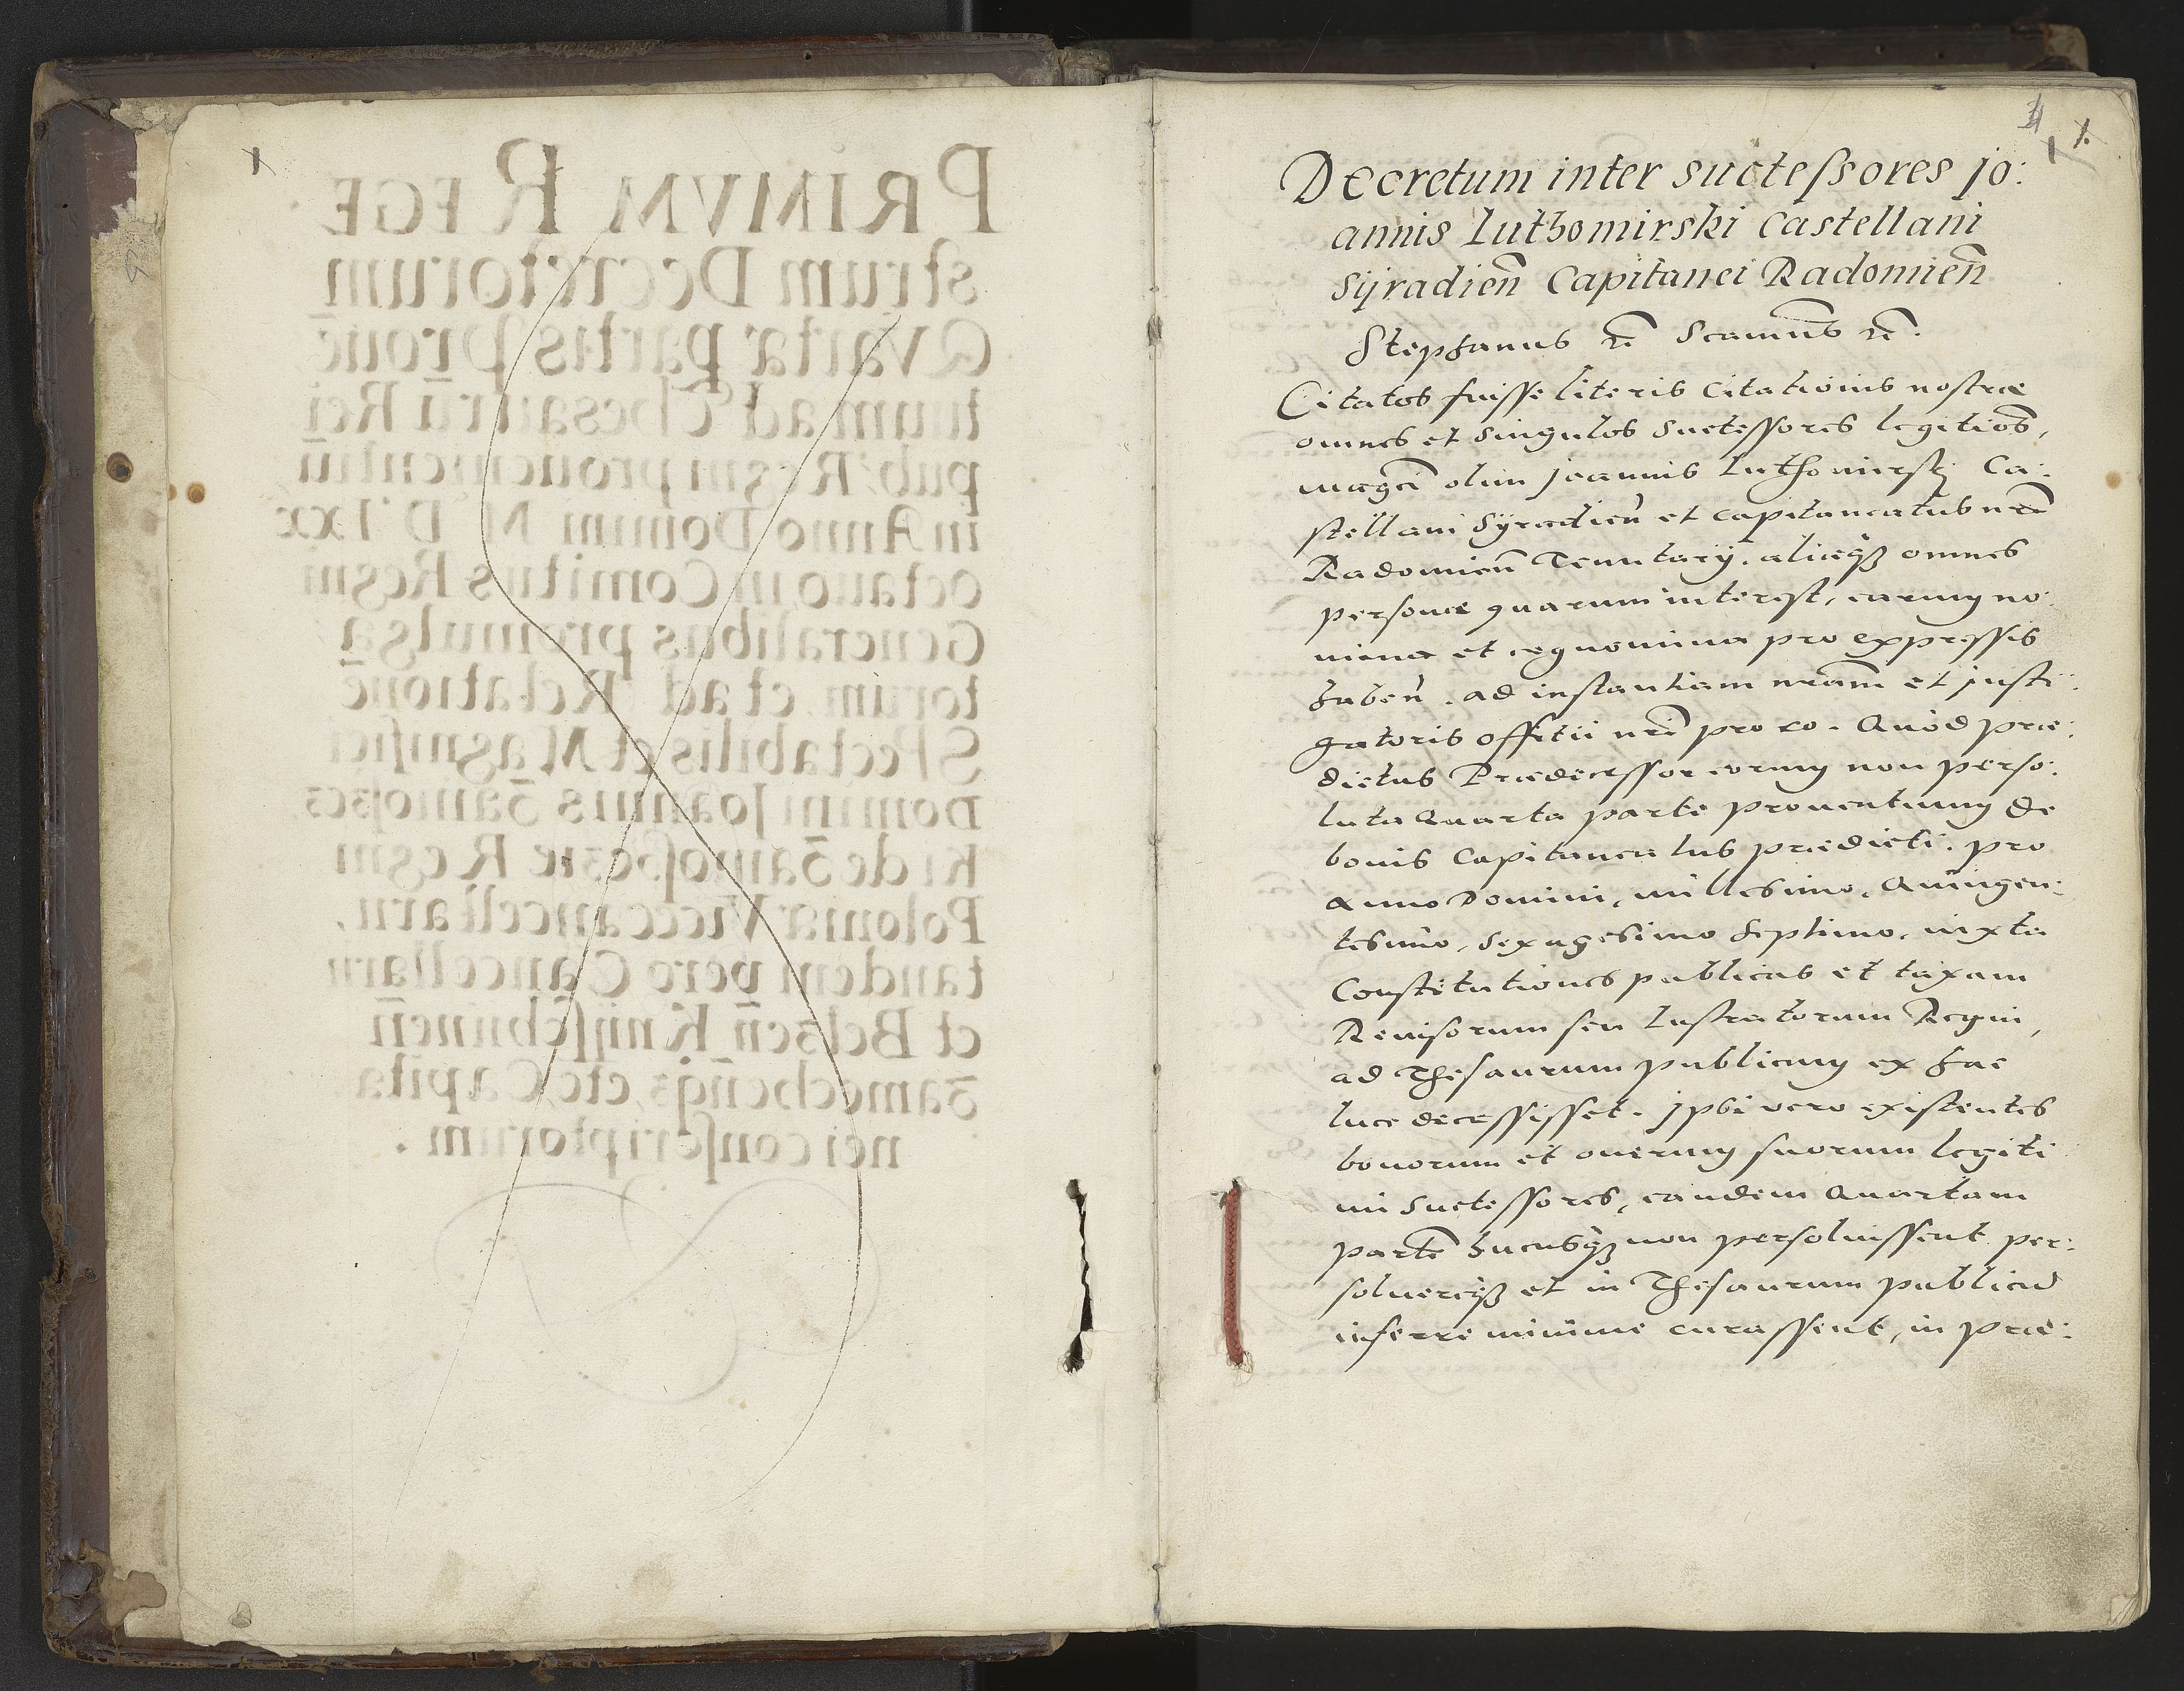 1
PRIMVM REGE
strum Decretorum
QVartæ partis Prouē
tuum ad Thesaurū Rei
pub: Regni prouenientiū
in Anno Domini M D Lxx
octauo in Comitiis Regni
Generalibus promulgā
torum et ad Relationē
SPectabilis et Magnifici
Domini Joannis Zamoijsc
ki de Zamosczie Regni
Poloniæ Vicecancellarii,
tandem vero Cancellarii
et Belzen̄ Knijschinen̄
Zamechen̄qз etc Capita
nei conscriptorum.
1.
Decretum inter suctessores Jo:
annis Luthomirski Castellani
Syradien̄ Capitanei Radomien̄
Stephanus rē Scimus rē.
Citatos fuisse literis Citationis nostræ
omnes et singulos suctessores legitios,
magci olim Joannis Luthomirskj Ca:
stellani Syradien̄ et capitaneatus nrī
Radomien̄ Tenutarij. aliasqз omnes
personæ quarum interest, earum no:
mina et cognomina pro expressis
haben̄. ad instantiam nram̄ et justi:
gatoris offitii nrī pro eo. Quòd præ:
dictus Prædecessor eorum non perso:
luta Quarta parte prouentuum de
bonis Capitaneatus prædicti. pro
Anno Domini, millesimo, Quingen:
tesimo, sexagesimo septimo, iuxta
Constitutiones publicas et taxam
Reuisorum seu Lustratorum Regni,
ad Thesaurum publicum ex hac
luce decessisset. Ipsi vero existentes
bonorum et onerum suorum legiti
mi suctessores, eandem Quartam
partē hucusqз non persoluissent per:
soluereqз et in Thesaurum publicū
inferre minime curassent, in præ: